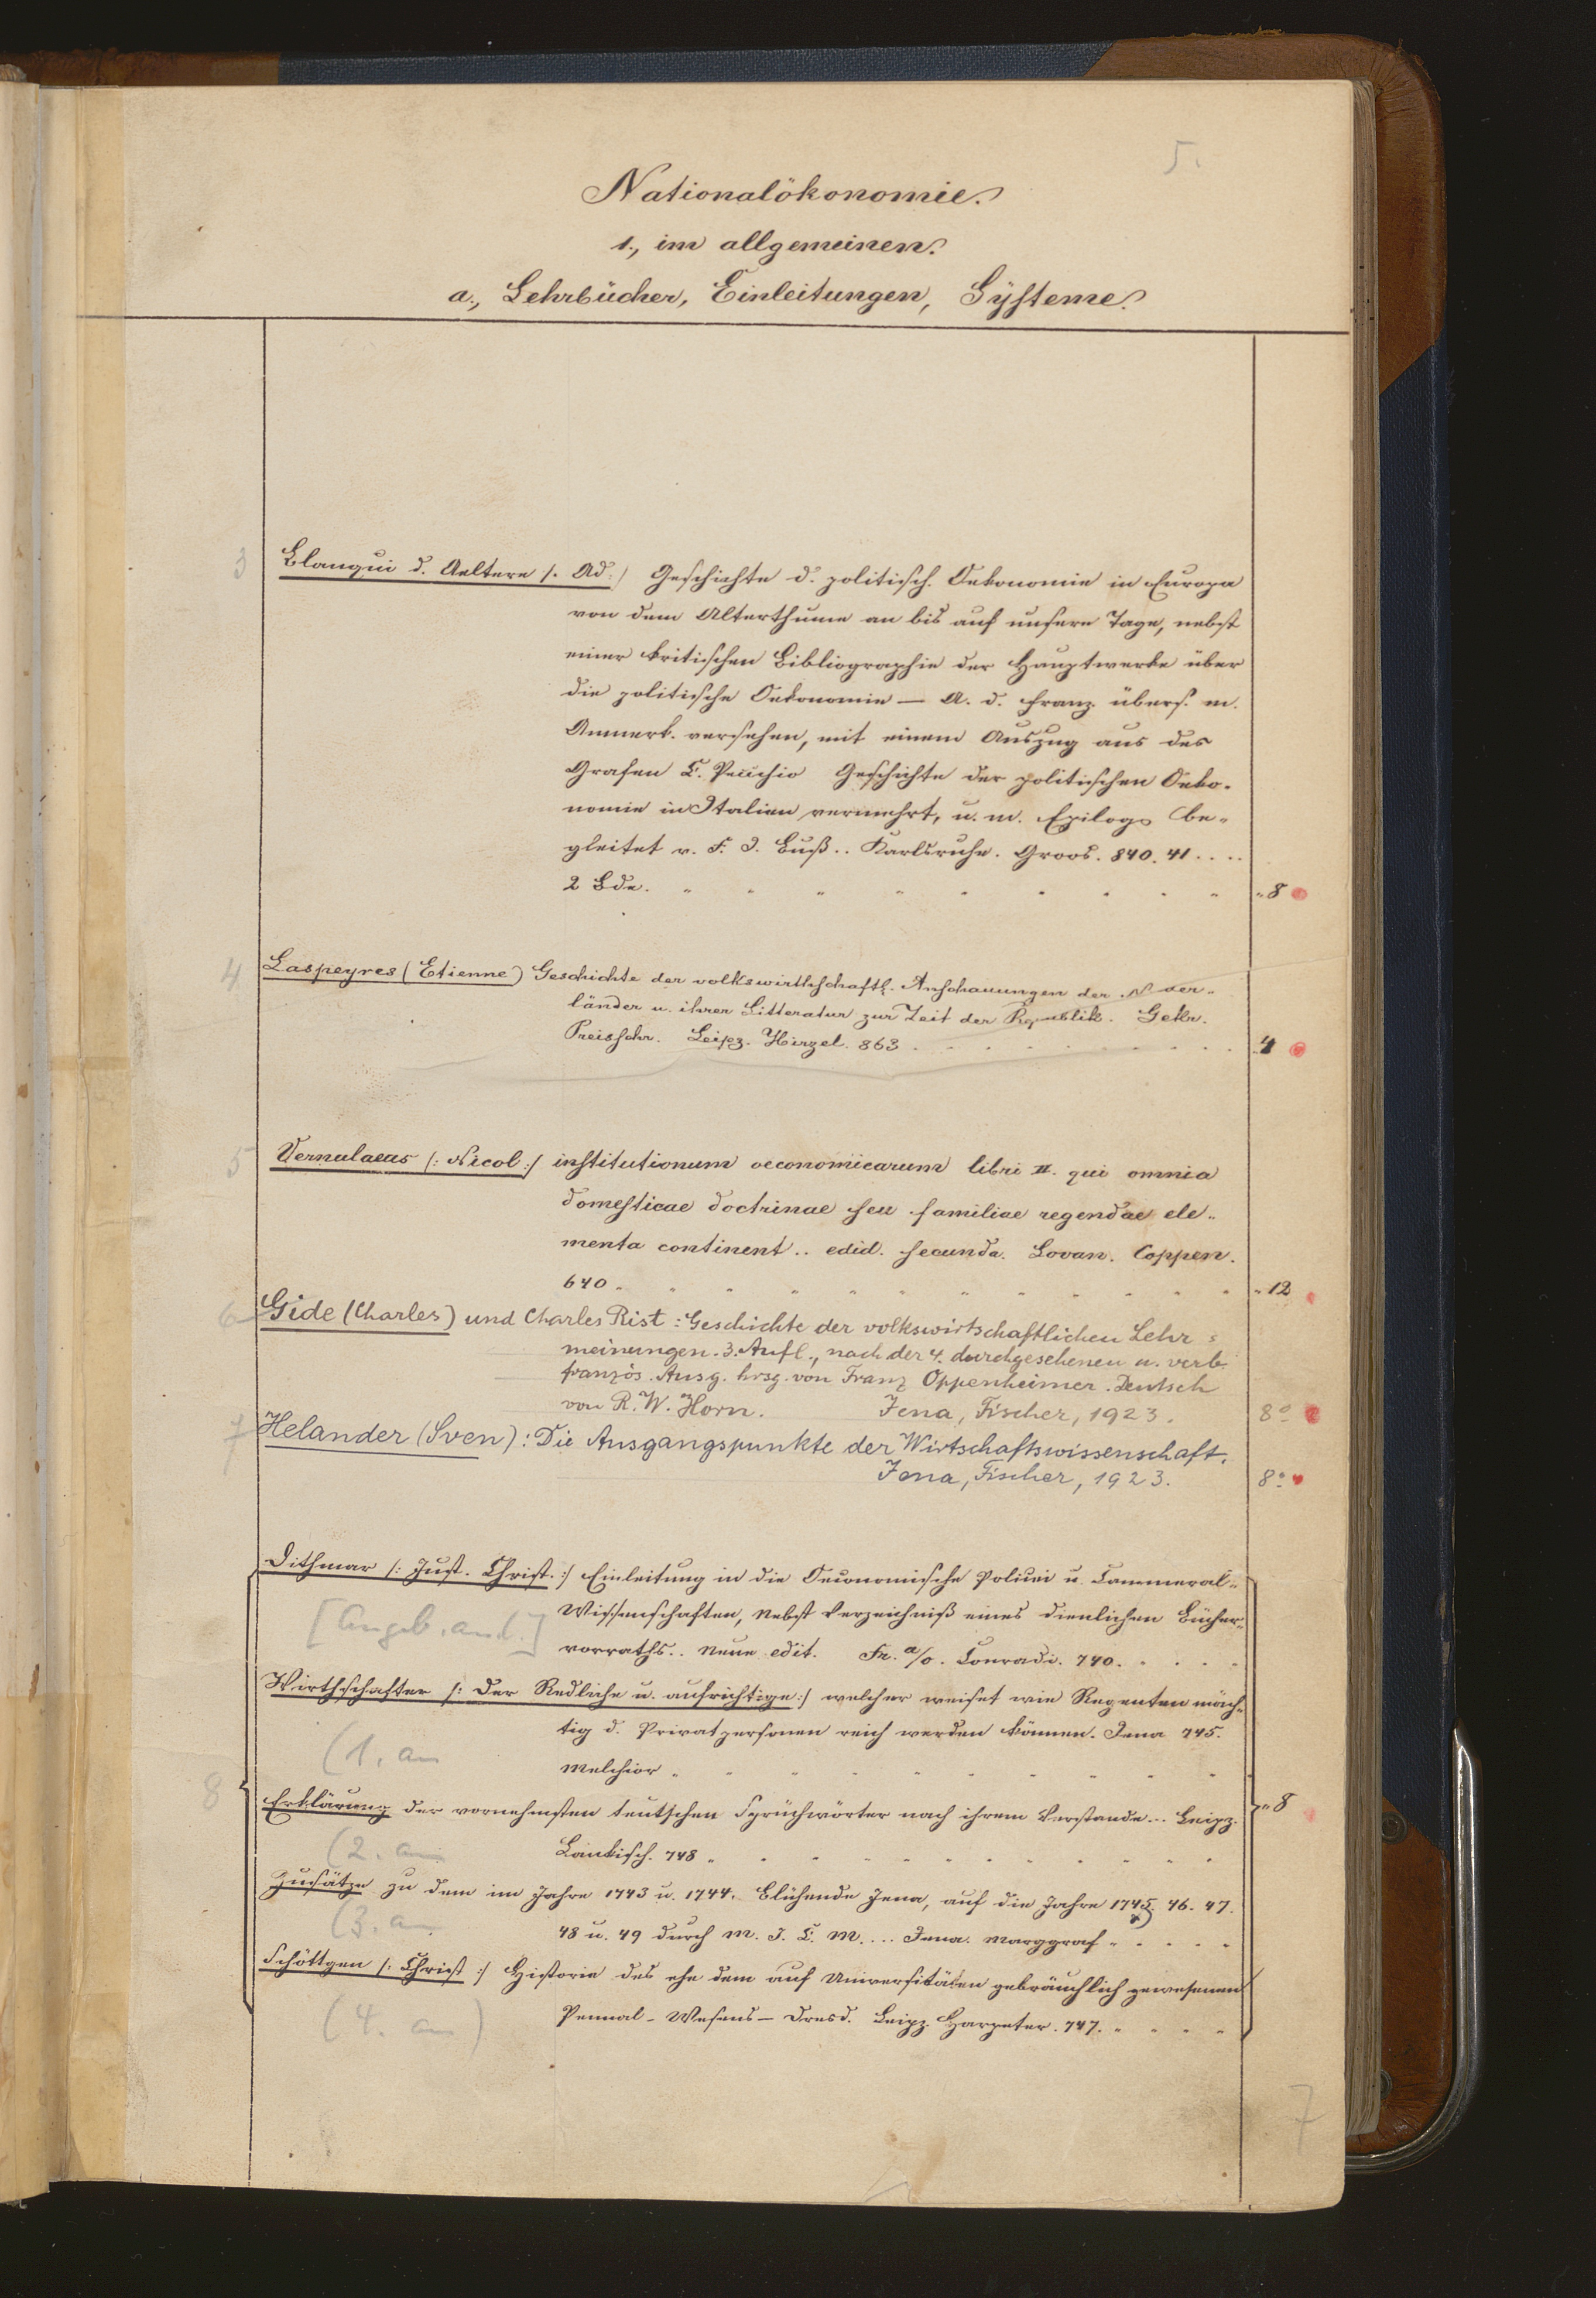 5.
Nationalökonomie.
1., im allgemeinen.
a., Lehrbücher, Einleitungen, Systeme.
3 Blanqui d. Aeltere /: Ad :/ Geschichte d. politisch. Oekonomie in Europa
von dem Alterthume an bis auf unsere Tage, nebst
einer kritischen Bibliographie der Hauptwerke über
die politische Oekonomie — A. d. Franz. übers. m.
Anmerk. versehen, mit einem Auszug aus des
Grafen Pecchio Geschichte der politischen Oeko-
nomie in Italien vermehrt, u. m. Epilog be-
gleitet v. F. J. Buß.. Karlsruhe. Groos. 840. 41....
2 Bde. 8
4 Laspeyres (Etienne) Geschichte der volkswirthschaftl. Anschauungen der N der-
länder u. ihrer Litteratur zur Zeit der Republik. Gekr.
Preisschr. Leipz. Hirzel. 863. 4
5 Vernulaeus /: Nicol :/ institutionum oeconomicarum libri II. qui omnia
domesticae doctrinae seu familiae regendae ele-
menta continent.. edid. secunda. Lovan. Coppen.
640. 12
6 Gide (Charles) und Charles Rist: Geschichte der volkswirtschaftlichen Lehr=
meinungen. 3. Aufl., nach der 4. durchgesehenen u. verb.
französ. Ausg. hrsg. von Franz Oppenheimer. Deutsch
von R. W. Horn. Jena, Fischer, 1923. 8°
7 Helander (Sven): Die Ausgangspunkte der Wirtschaftswissenschaft.
Jena, Fischer, 1923. 8°
Dithmar /: Just. Christ. :/ Einleitung in die Oeconomische Policei u. Cammeral-
Wissenschaften, nebst Verzeichniß eines dienlichen Bücher-
[Angeb. and.] vorraths.. Neue edit. Fr. a/O. Conradi. 740.
Wirthschafter /: Der Redliche u. aufrichtige :/ welcher weiset wie Regenten mäch-
tig d. Privatpersonen reich werden können. Jena 745.
(1. an Melchior
8 Erklärung der vornehmsten teutschen Sprüchwörter nach ihrem Verstande... Leipz. 8
(2. an Lankisch. 748
Zusätze zu dem im Jahre 1743 u. 1744. Blühende Jena, auf die Jahre 1745. 46. 47.
(3. an 48 u. 49 durch M. J. C. M.... Jena. Marggraf
Schöttgen /: Christ :/ Historie des ehe dem auf Universitäten gebräuchlich gewesenen
(4. an) Pennal-Wesens — Dresd. Leipz. Harpeter. 747.
7